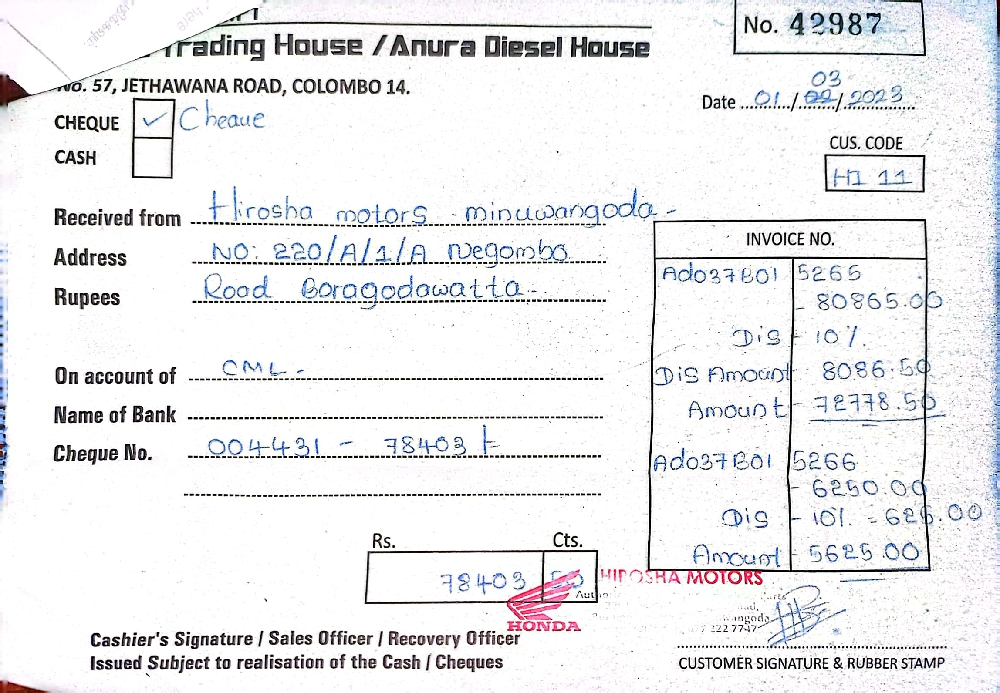 Trading House / Anura Diesel House
No. 42987
No. 57, JETHAWANA ROAD, COLOMBO 14.
03
Date 01/02/2023
CHEQUE ✓ Cheaue
CASH
CUS. CODE
HI 11
Received from Hirosha motors - minuwangoda -
Address NO: 220/A/1/A Negombo
Rupees Road Boragodawatta -
On account of CML -
Name of Bank
Cheque No. 004431 - 78403
INVOICE NO.
Ado37B01 5265
- 80865.00
Dis - 10%
Dis Amount 8086.50
Amount - 72778.50
Ado37B01 5266
- 6250.00
Dis - 10% = 625.00
Amount - 5625.00
Rs. Cts.
78403 50
HIROSHA MOTORS
HONDA
Cashier's Signature / Sales Officer / Recovery Officer
Issued Subject to realisation of the Cash / Cheques
CUSTOMER SIGNATURE & RUBBER STAMP